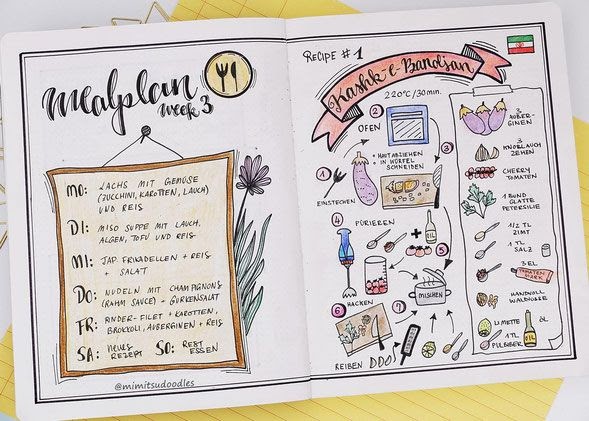 Mealplan
week 3
MO: LACHS MIT GEMÜSE
(ZUCCHINI, KAROTTEN, LAUCH)
UND REIS
DI: MISO SUPPE MIT LAUCH,
ALGEN, TOFU UND REIS
MI: JAP. FRIKADELLEN + REIS
+ SALAT
DO: NUDELN MIT CHAMPIGNONS
(RAHM SAUCE) + GURKENSALAT
FR: RINDER-FILET + KAROTTEN,
BROKKOLI, AUBERGINEN + REIS
SA: NEUES REZEPT SO: REST ESSEN
@mimitsudoodles
RECIPE #1
Kashk-e-Bandjan
220°C/30min.
2
OFEN
3
+ HAUT ABZIEHEN
+ IN WÜRFEL
SCHNEIDEN
1
EINSTECHEN
4
PÜRIEREN
+
5
MISCHEN
6
HACKEN
7
REIBEN
3 AUBER-
GINEN
3
KNOBLAUCH
ZEHEN
CHERRY
TOMATEN
1 BUND
GLATTE
PETERSILIE
1/2 TL
ZIMT
1 TL
SALZ
3 EL
TOMATEN
MARK
HANDVOLL
WALNÜSSE
LIMETTE
ÖL
1 TL
PULBIBER